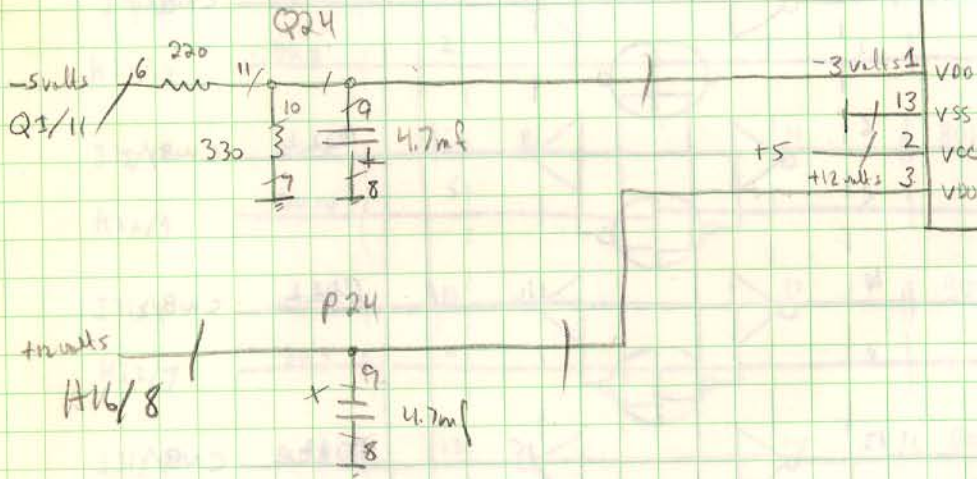 Q24
220
-5 volts
6
11
Q1/11
10
9
330
4.7mf
+
7
8
-3 volts 1 VDD
13 VSS
+5 2 VCC
+12 volts 3 VDD
P24
+12 volts
H16/8
9
+
4.7mf
8